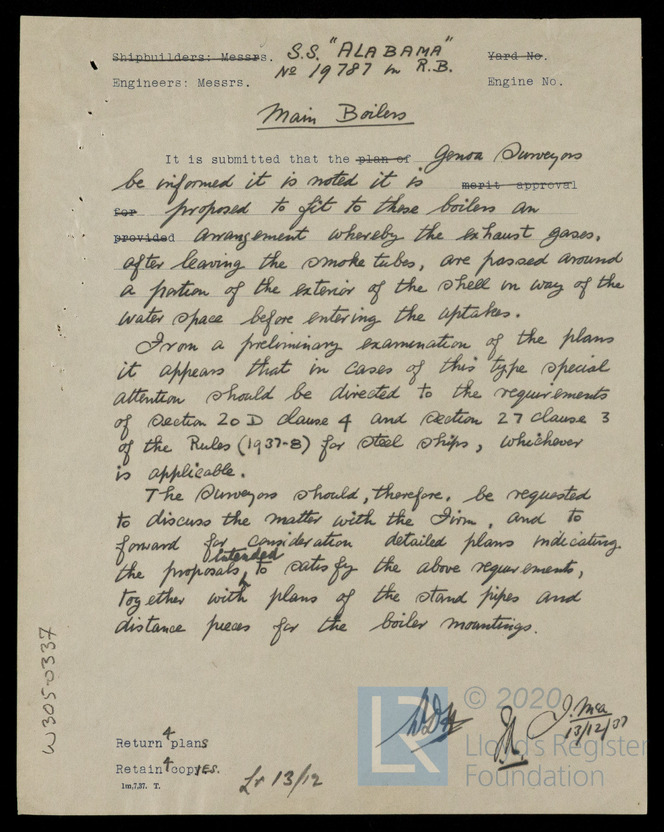 Shipbuilders: Messrs. S.S. "ALABAMA" Yard No.
Engineers: Messrs. No 19787 in R.B. Engine No.
Main Boilers
It is submitted that the plan of Genoa Surveyors
be informed it is noted it is merit approval
for proposed to fit to these boilers an
provided arrangement whereby the exhaust gases,
after leaving the smoke tubes, are passed around
a portion of the exterior of the shell in way of the
water space before entering the uptakes.
From a preliminary examination of the plans
it appears that in cases of this type special
attention should be directed to the requirements
of section 20 D clause 4 and section 27 clause 3
of the Rules (1937-8) for steel ships, whichever
is applicable.
The Surveyors should, therefore, be requested
to discuss the matter with the Firm, and to
forward for consideration detailed plans indicating
the proposals, intended to satisfy the above requirements,
together with plans of the stand pipes and
distance pieces for the boiler mountings.
W305-0337
© 2020
Lloyd's Register
Foundation
LR
13/12/37
Return 4 plans
Retain 4 copyes.
1m,7,37. T.
Lr 13/12